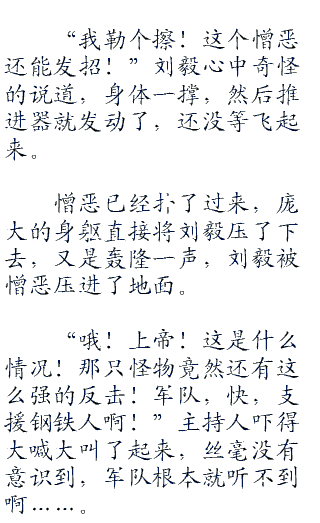 “我勒个擦！这个憎恶
还能发招！”刘毅心中奇怪
的说道，身体一撑，然后推
进器就发动了，还没等飞起
来。
憎恶已经扑了过来，庞
大的身躯直接将刘毅压了下
去，又是轰隆一声，刘毅被
憎恶压进了地面。
“哦！上帝！这是什么
情况！那只怪物竟然还有这
么强的反击！军队，快，支
援钢铁人啊！”主持人吓得
大喊大叫了起来，丝毫没有
意识到，军队根本就听不到
啊……。